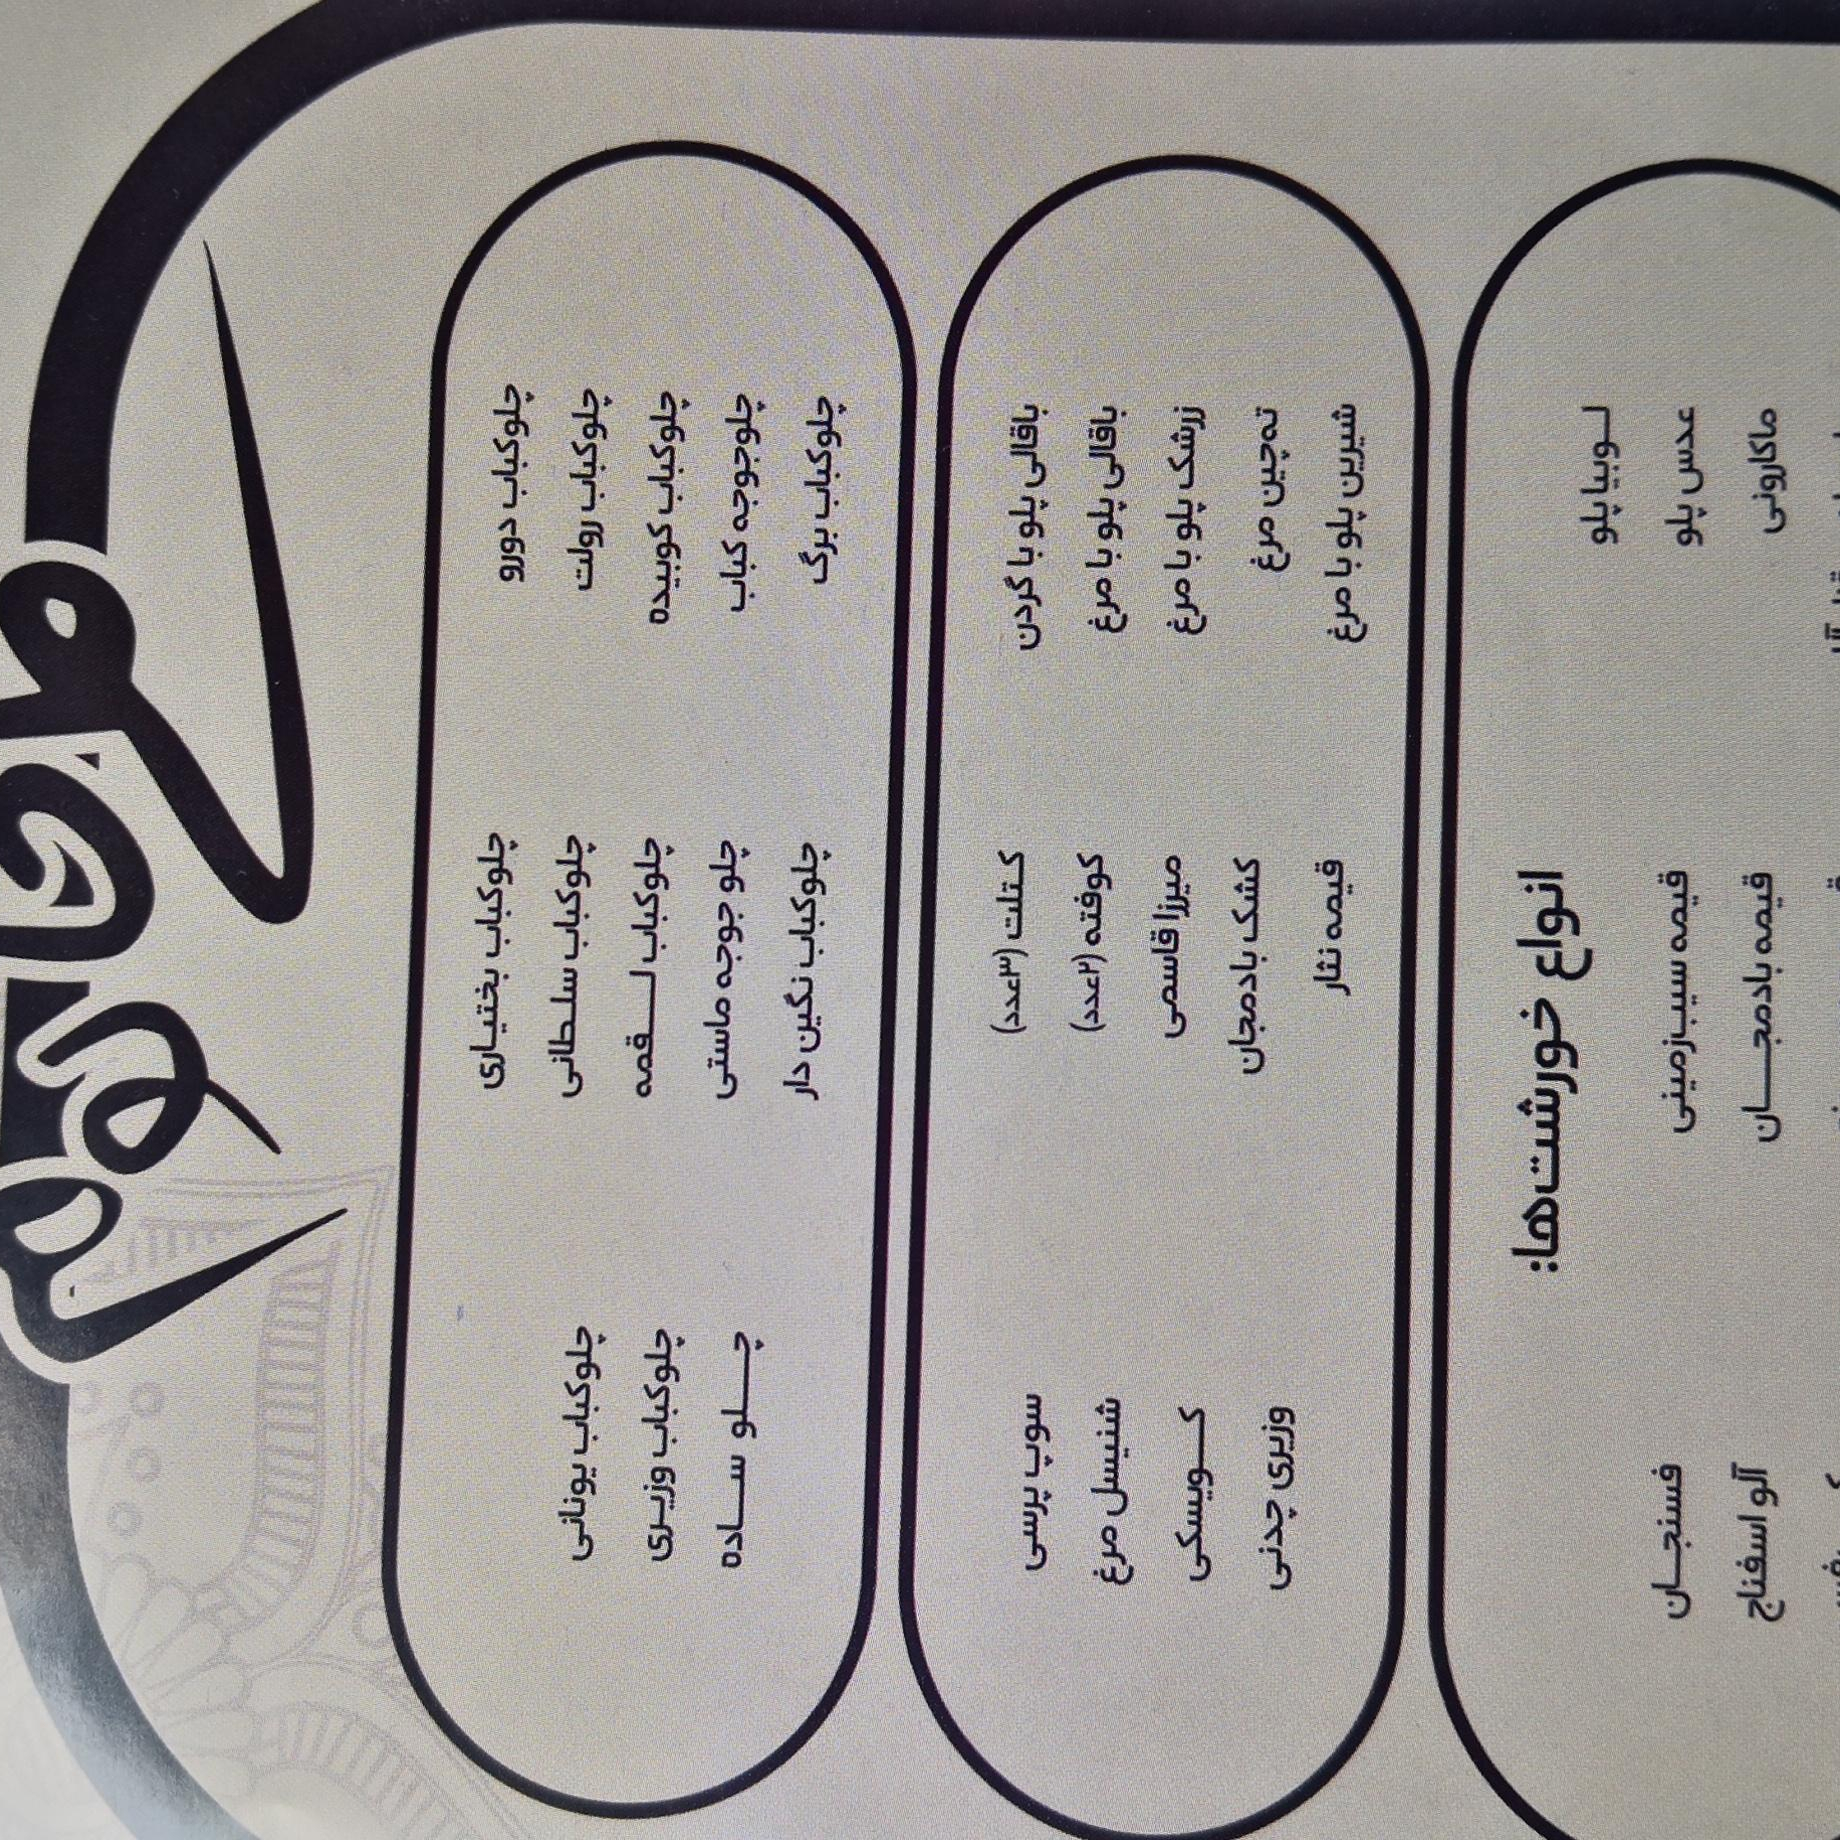 چلوکباب دورو
چلوکباب رولت
چلوکباب کوبیده
چلوجوجه کباب
چلوکباب برگ
چلوکباب بختیاری
چلوکباب سلطانی
چلوکباب لقمه
چلو جوجه ماستی
چلوکباب نگین دار
چلوکباب یونانی
چلوکباب وزیری
چلو ساده
باقالی پلو با گردن
باقالی پلو با مرغ
زرشک پلو با مرغ
ته‌چین مرغ
شیرین پلو با مرغ
کتلت (۳عدد)
کوفته (۲عدد)
میرزا قاسمی
کشک بادمجان
قیمه نثار
سوپ پرسی
شنیسل مرغ
کوبیسکی
وزیری چدنی
لوبیا پلو
عدس پلو
ماکارونی
انواع خورشت‌ها:
قیمه سیب‌زمینی
قیمه بادمجان
فسنجان
آلو اسفناج